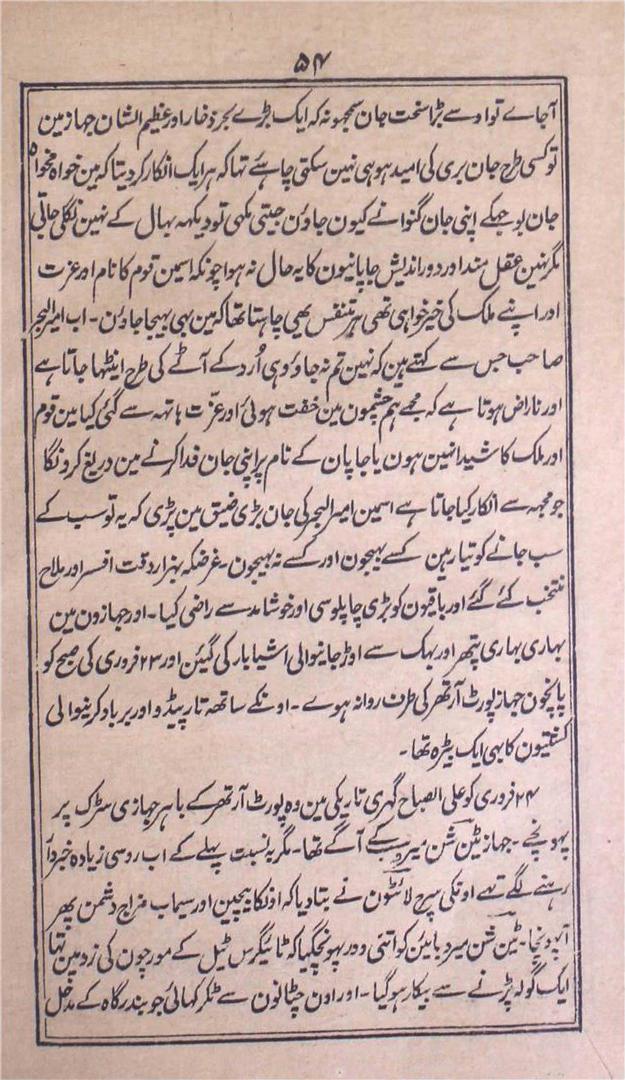 ۵۴
آجاے تو اوسے بڑا سخت جان سمجھو نہ کہ ایک بڑے بحر ذخار اور عظیم الشان جہاز مین
تو کسی طرح جان بری کی امید ہو ہی نہین سکتی چاہئے تھا کہ ہر ایک انکار کر دیتا کہ مین خواہ مخواہ
جان بوجھکے اپنی جان گنوانے کیون جاؤن جیتی مکھی تو دیکھہ بھال کے نہین نگلی جاتی
مگر نہین عقل مند اور دور اندیش جاپانیون کا یہ حال نہ ہوا چونکہ اسمین قوم کا نام اور عزت
اور اپنے ملک کی خیر خواہی تھی ہر متنفس یہی چاہتا تھا کہ مین بھی بھیجا جاؤن - اب امیر البحر
صاحب جس سے کہتے ہین کہ نہین تم نہ جاؤ وہی اُرد کے آٹے کی طرح اینٹھا جاتا ہے
اور ناراض ہوتا ہے کہ مجھے ہم چشمون مین خفت ہوئی اور عزت ہاتھہ سے گئی کیا مین قوم
اور ملک کا شیدا نہین ہون یا جاپان کے نام پر اپنی جان فدا کرنے مین دریغ کرونگا
جو مجھہ سے انکار کیا جاتا ہے اسمین امیر البحر کی جان بڑی ضیق مین پڑی کہ یہ تو سب کے
سب جانے کو تیار ہین کسے بھیجون اور کسے نہ بھیجون - غرضکہ بہزار دقت افسر اور ملاح
منتخب کئے گئے اور باقون کو بڑی چاپلوسی اور خوشامد سے راضی کیا - اور جہازون مین
بھاری بھاری پتھر اور بھک سے اوڑ جانیوالی اشیا بار کی گیئن اور ۲۳ فروری کی صبح کو
پانچون جہاز پورٹ آرتھر کی طرف روانہ ہوے - اونکے ساتھہ تارپیڈو اور برباد کرنیوالی
کشتیون کا بھی ایک بیڑہ تھا -
۲۴ فروری کو علی الصباح گہری تاریکی مین وہ پورٹ آرتھر کے باہر جہازی سڑک پر
پہونچے - جہاز ٹین شن میرو سب کے آگے تھا - مگر بہ نسبت پہلے کے اب روسی زیادہ خبردار
رہنے لگے تھے اونکی سرچ لائٹون نے بتا دیا کہ اونکا بیچین اور سیماب مزاج دشمن پھر
آپہونچا - ٹین شن میرو بائین کو اتنی دور پہونچگیا کہ ٹائیگرس ٹیل کے مورچون کی زد مین تھا
ایک گولہ پڑنے سے بیکار ہوگیا - اور اون چٹانون سے ٹکر کھائی جو بندرگاہ کے مدخل